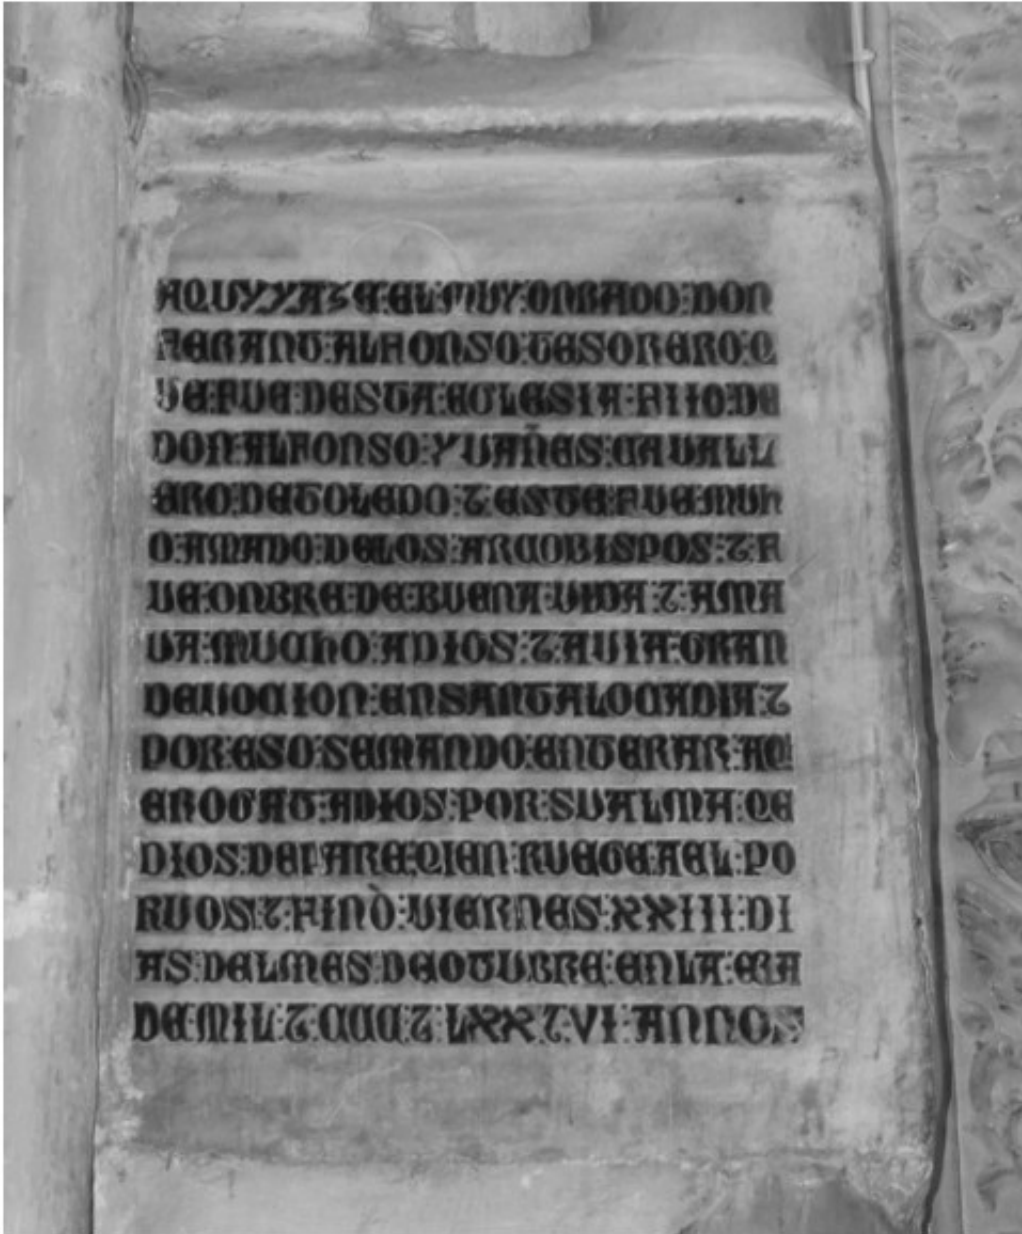 AQUYYAZE:EL:MUY:ONRADO:DON
FERANT:ALFONSO:TESORERO:Q
UE:FUE:DESTA:ECLESIA:FIIO:DE
DON:ALFONSO:YUAÑES:CAUALL
ERO:DETOLEDO:⁊:ESTE:FUE:MUH
O:AMADO:DELOS:ARCOBISPOS:⁊:F
UE:ONBRE:DE:BUENA:UIDA:⁊:AMA
UA:MUCHO:ADIOS:⁊:AUIA:GRAN
DEUOCION:ENSANTALOCADIA:⁊
POR:ESO:SEMANDO:ENTERAR:AQ
EROGAT:ADIOS:POR:SUALMA:QE
DIOS:DEPARE:QIEN:RUEGE:AEL:PO
RUOS:⁊:FINÒ:UIERNES:XXIII:DI
AS:DELMES:DEOTUBRE:ENLA:ERA
DE:MIL:⁊:CCC:⁊:LXX⁊:VI:ANNOS